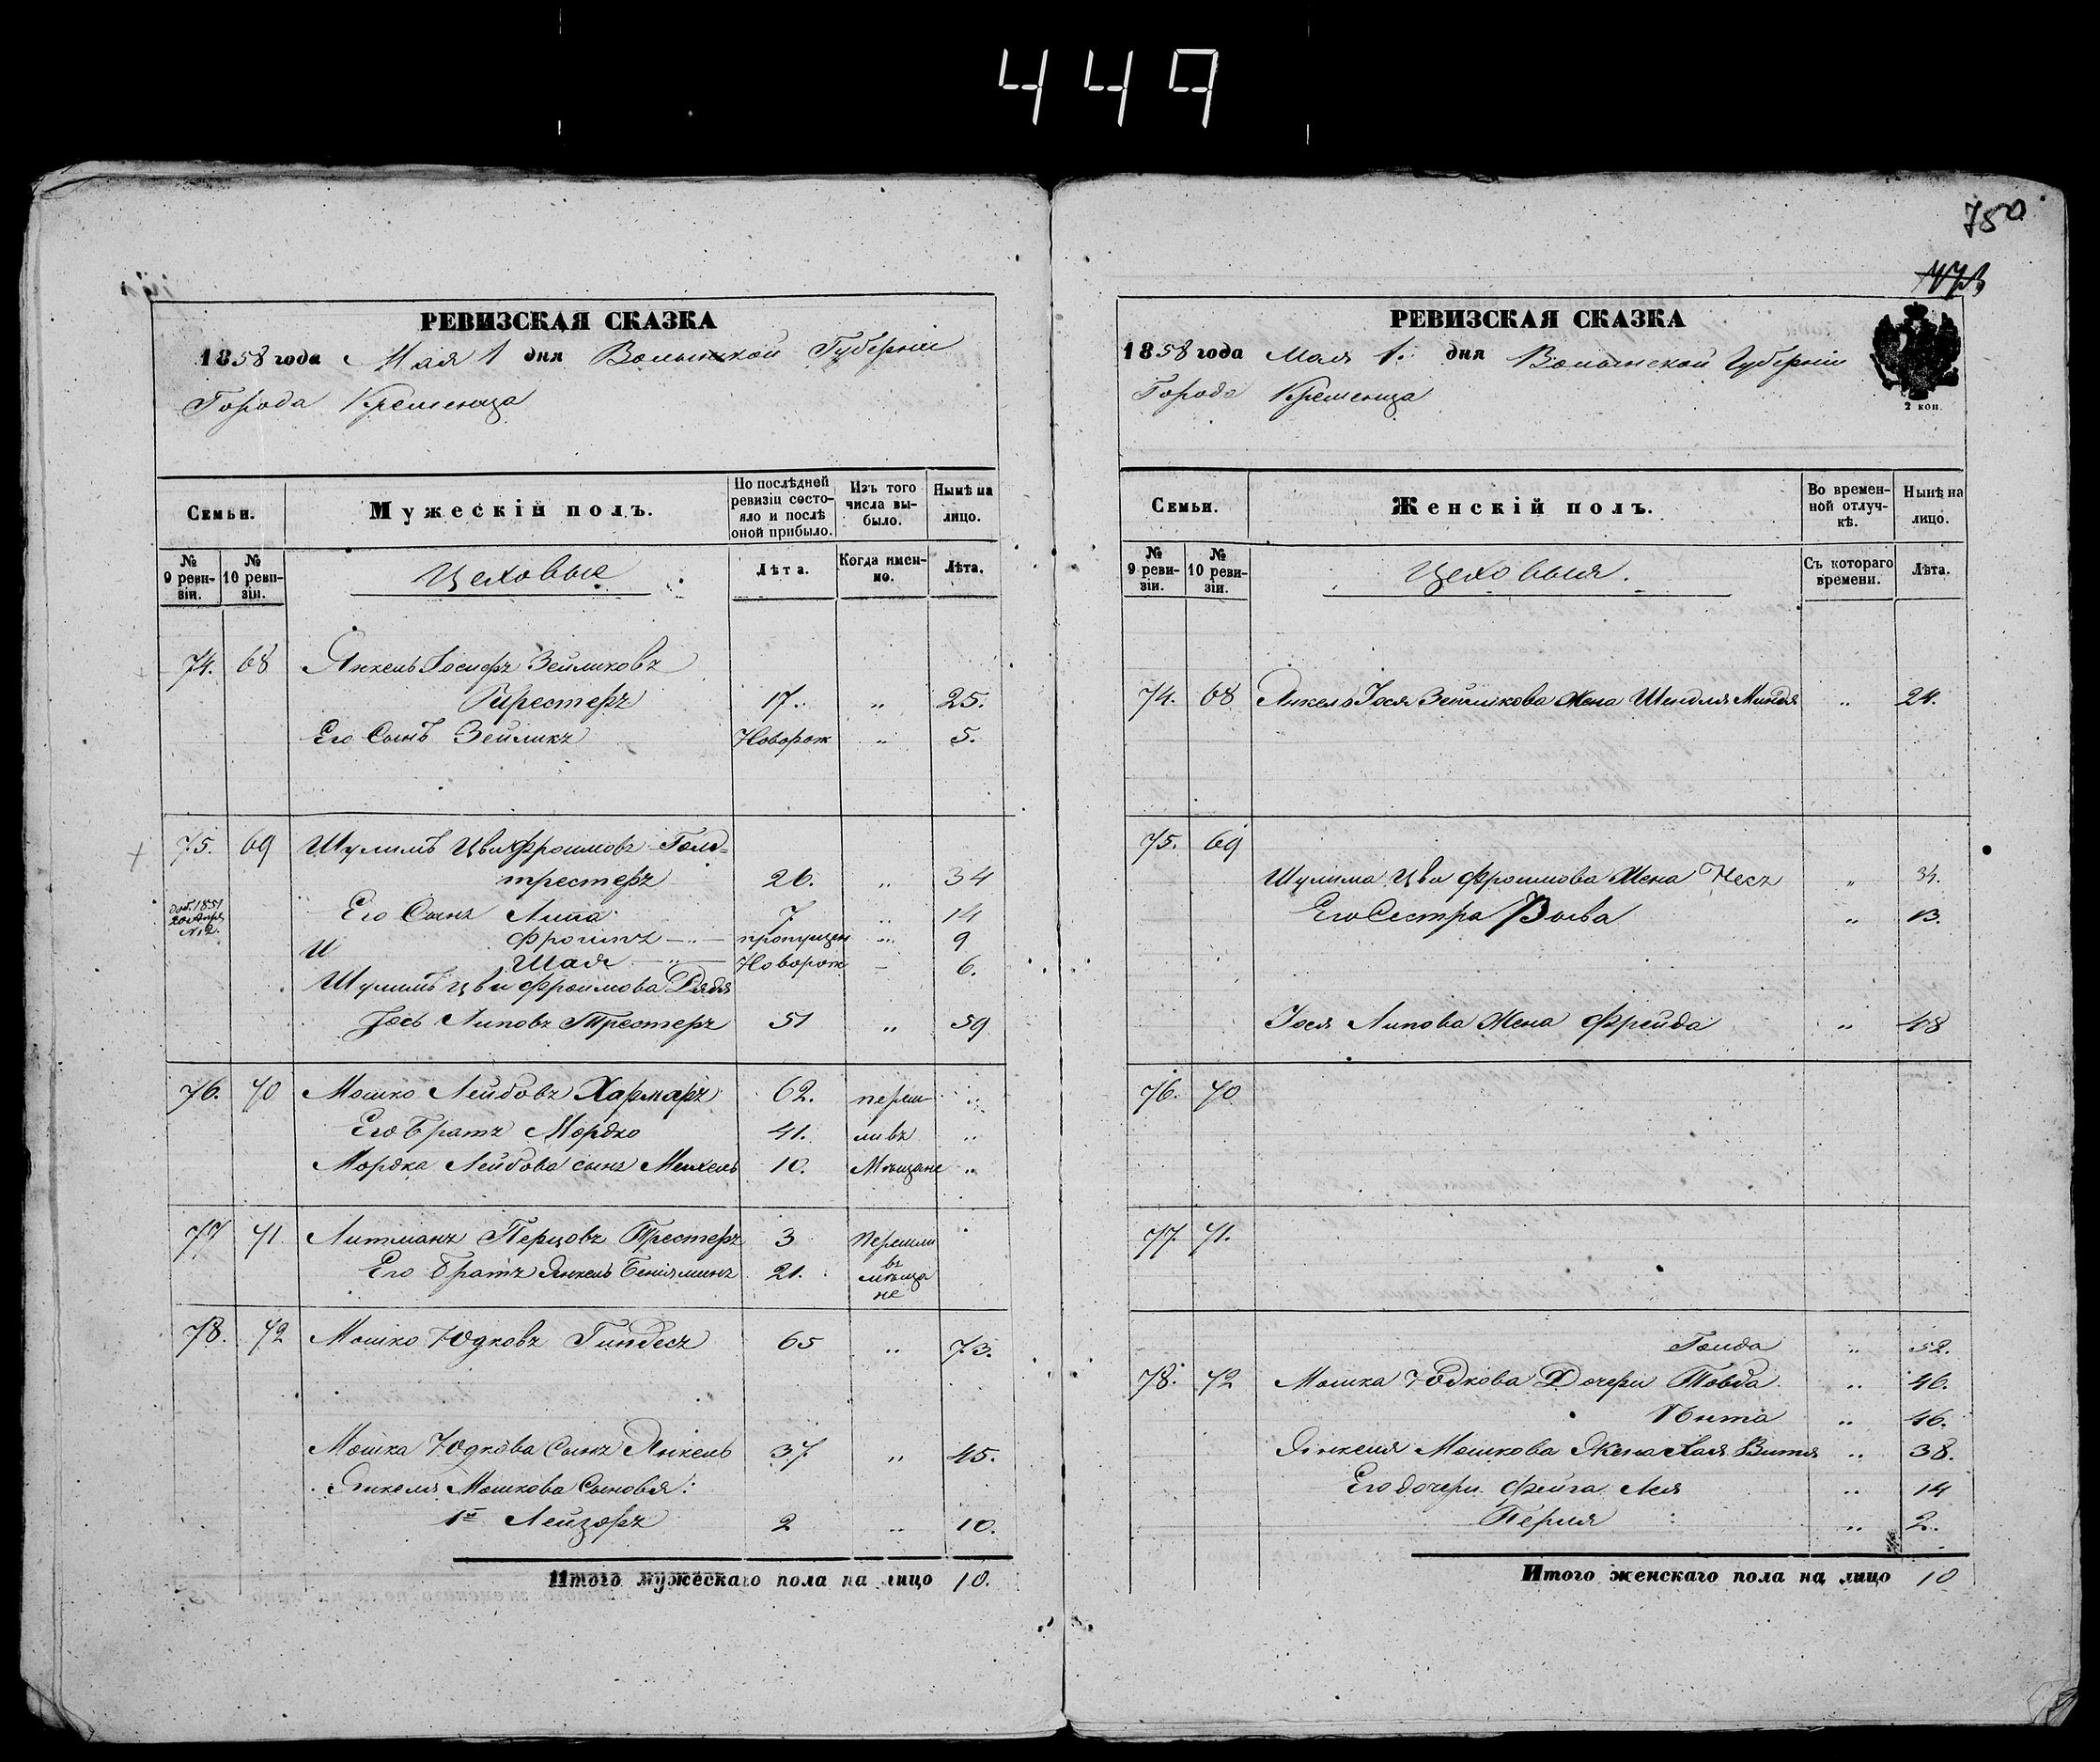 449
750
РЕВИЗСКАЯ СКАЗКА
1858 года Мая 1 дня Волынской Губернии
Города Кременца
Семьи.
Мужескій полъ.
По послѣдней ревизіи состояло и послѣ оной прибыло.
Изъ того числа выбыло.
Нынѣ на лицо.
№ 9 ревизіи.
№ 10 ревизіи.
Цеховые
Лѣта.
Когда именно.
Лѣта.
74. 68 Янкель Іосифъ Зейликовъ
Трестеръ 17. " 25.
Его Сынъ Зейликъ Новорож " 5.
75. 69 Шулимъ Цви Фроимовъ Голд=
трестеръ 26. " 34
Его Сынъ Липа 7 " 14
Фроимъ — " — пропущен " 9
И Шая — " — Новорож – 6.
Шулимъ Цви Фроимова Дядя
Іось Липовъ Трестеръ 51 " 59
доб. 1851
20 Апр.
№ 2.
76. 70 Мошко Лейбовъ Хармаръ 62. переш- "
Его Братъ Мордко 41. ли въ "
Мордка Лейбова сынъ Мехель 10. Мѣщане "
77 71 Литманъ Перцовъ Трестеръ 3 Перешли
Его Братъ Янкель Беніяминъ 21. въ мѣща
не
78. 72 Мошко Юдковъ Гиндесъ 65 " 73.
Мошка Юдкова Сынъ Янкель 37 " 45.
Янкеля Мошкова Сыновья:
1й Лейзоръ 2 " 10.
Итого мужескаго пола на лицо 10.
РЕВИЗСКАЯ СКАЗКА
1858 года Мая 1. дня Волынской Губерніи
Города Кременца
2 коп.
Семьи.
Женскій полъ.
Во временной отлучкѣ.
Нынѣ на лицо.
№ 9 ревизіи.
№ 10 ревизіи.
Цеховыя.
Съ котораго времени.
Лѣта.
74. 68 Янкель Іося Зейликова Жена Шендля Миндя " 24.
75. 69
Шулима Цви Фроимова Жена Несъ " 34.
Его Сестра " 13.
Іося Липова Жена Фрейда " 48
76. 70
77. 71.
Голда " 52.
78. 72 Мошка Юдкова Дочери Товба " 46.
" 46.
Янкеля Мошкова Жена Хая Витя " 38.
Его дочери Фейга Лея " 14
Перля " 2.
Итого женскаго пола на лицо 10